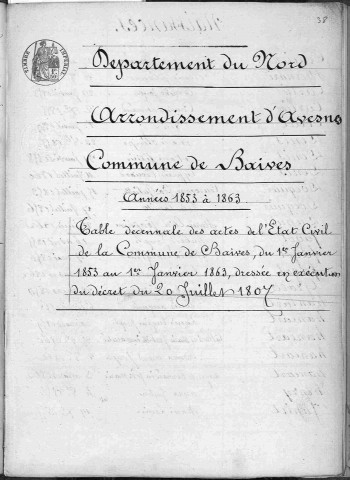 38
TIMBRE IMPERIAL
Département du Nord
Arrondissement d'Avesnes
Commune de Baives
Années 1853 à 1863
Table décennale des actes de l'Etat Civil
de la Commune de Baives, du 1er Janvier
1853 au 1er Janvier 1863, dressée en exécution
du décret du 20 Juillet 1807